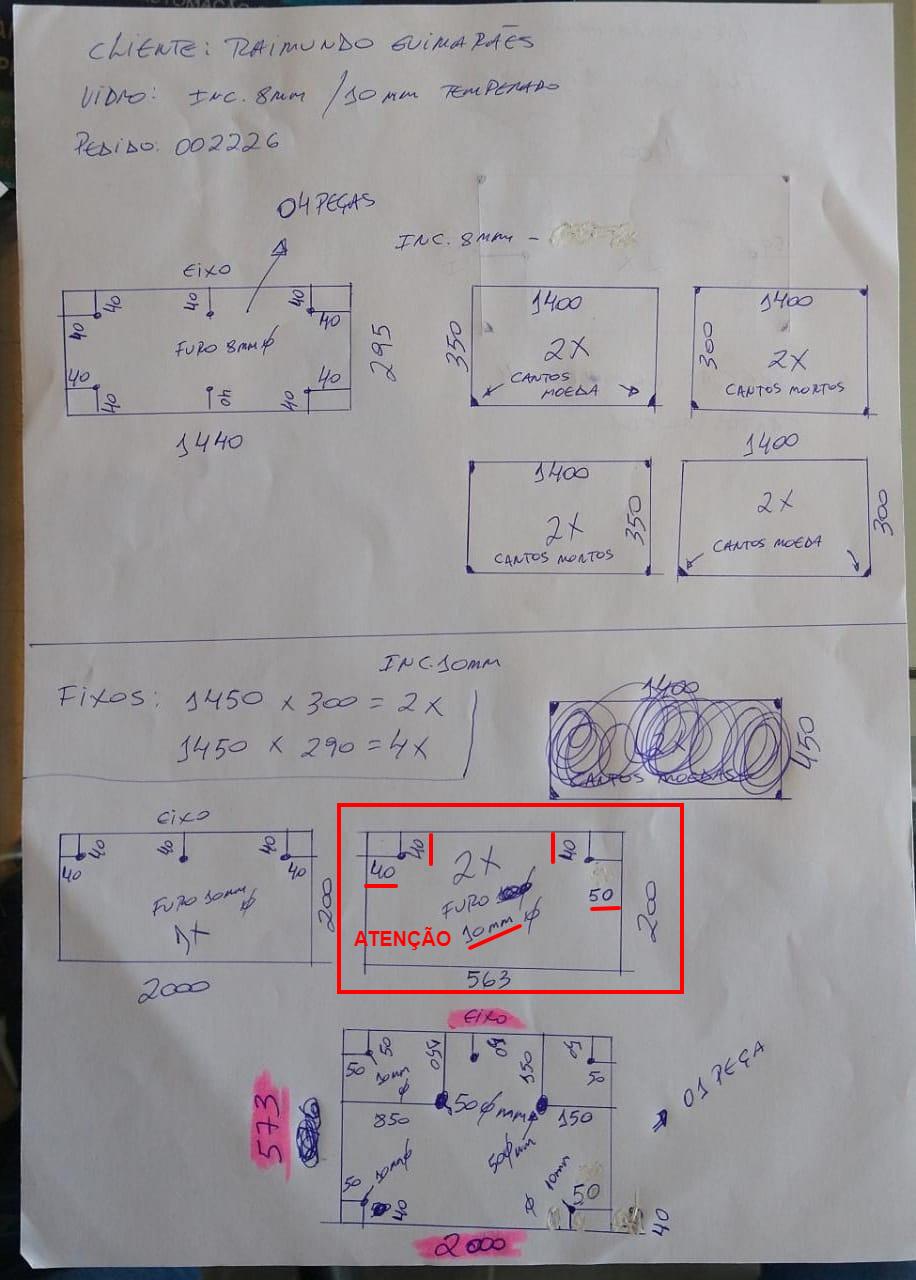 CLIENTE: RAIMUNDO GUIMARÃES
VIDRO: INC. 8mm / 10mm TEMPERADO
PEDIDO: 002226
04 PEÇAS
INC. 8mm -
EIXO
40 40 40 40 40
FURO 8mm ϕ
295
40 40 40 40 40
1440
1400
350
2X
CANTOS MOEDA
1400
300
2X
CANTOS MORTOS
1400
2X
350
CANTOS MORTOS
1400
2X
300
CANTOS MOEDA
INC.10mm
FIXOS: 1450 x 300 = 2x
1450 x 290 = 4x
1400
450
CANTOS MOEDAS
EIXO
40 40 40 40 40
FURO 10mm ϕ
1X
200
2000
40 40 40
2X
50
FURO
10mm ϕ
ATENÇÃO
200
563
EIXO
50 50 150 50 150 50 50
10mm ϕ
50 ϕ mm
850
150
50 ϕ mm
01 PEÇA
573
50 10mm ϕ
40
ϕ 10mm
50
40
2000